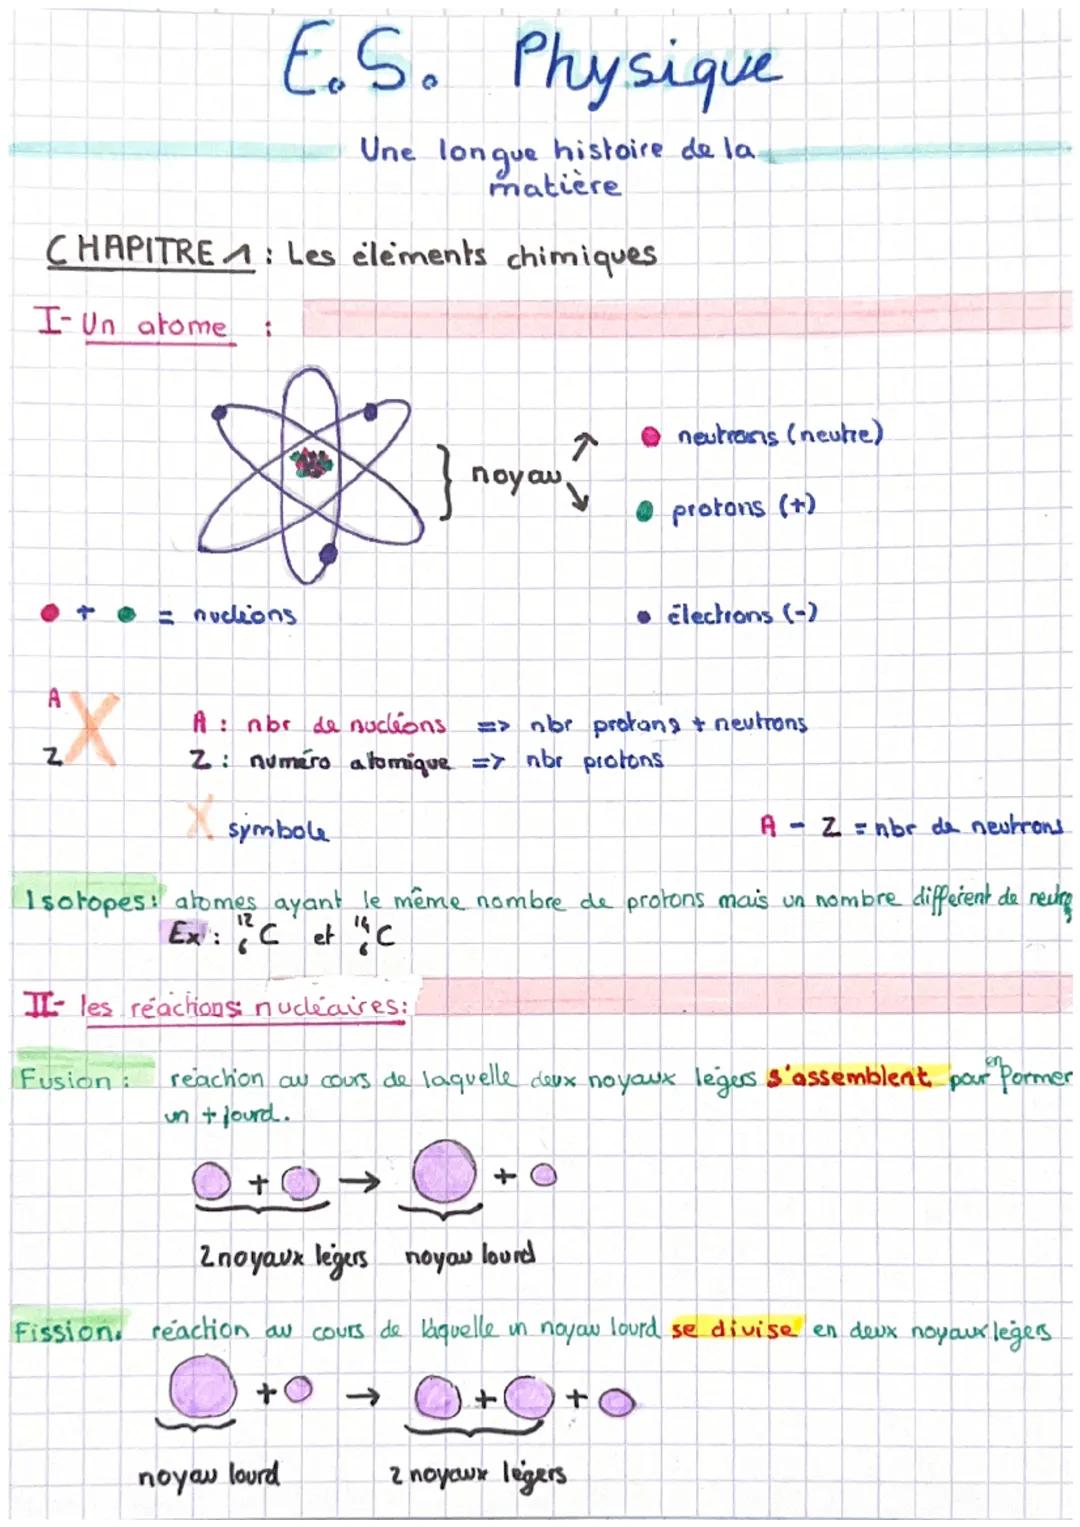 E.S. Physique
Une longue histoire de la
matière
CHAPITRE 1 : Les éléments chimiques
I- Un atome :
neutrons (neutre)
noyau
protons (+)
+ = nucléons
électrons (-)
A
X
Z
A : nbr de nucléons => nbr protons + neutrons
Z : numéro atomique => nbr protons
X symbole
A - Z = nbr de neutrons
Isotopes : atomes ayant le même nombre de protons mais un nombre différent de neutro
Ex : ¹²₆C et ¹⁴₆C
II- les réactions nucléaires :
Fusion : réaction au cours de laquelle deux noyaux légers s'assemblent pour en former
un + lourd.
+ → +
2 noyaux légers noyau lourd
Fission. réaction au cours de laquelle un noyau lourd se divise en deux noyaux légers
+ → + +
noyau lourd 2 noyaux légers